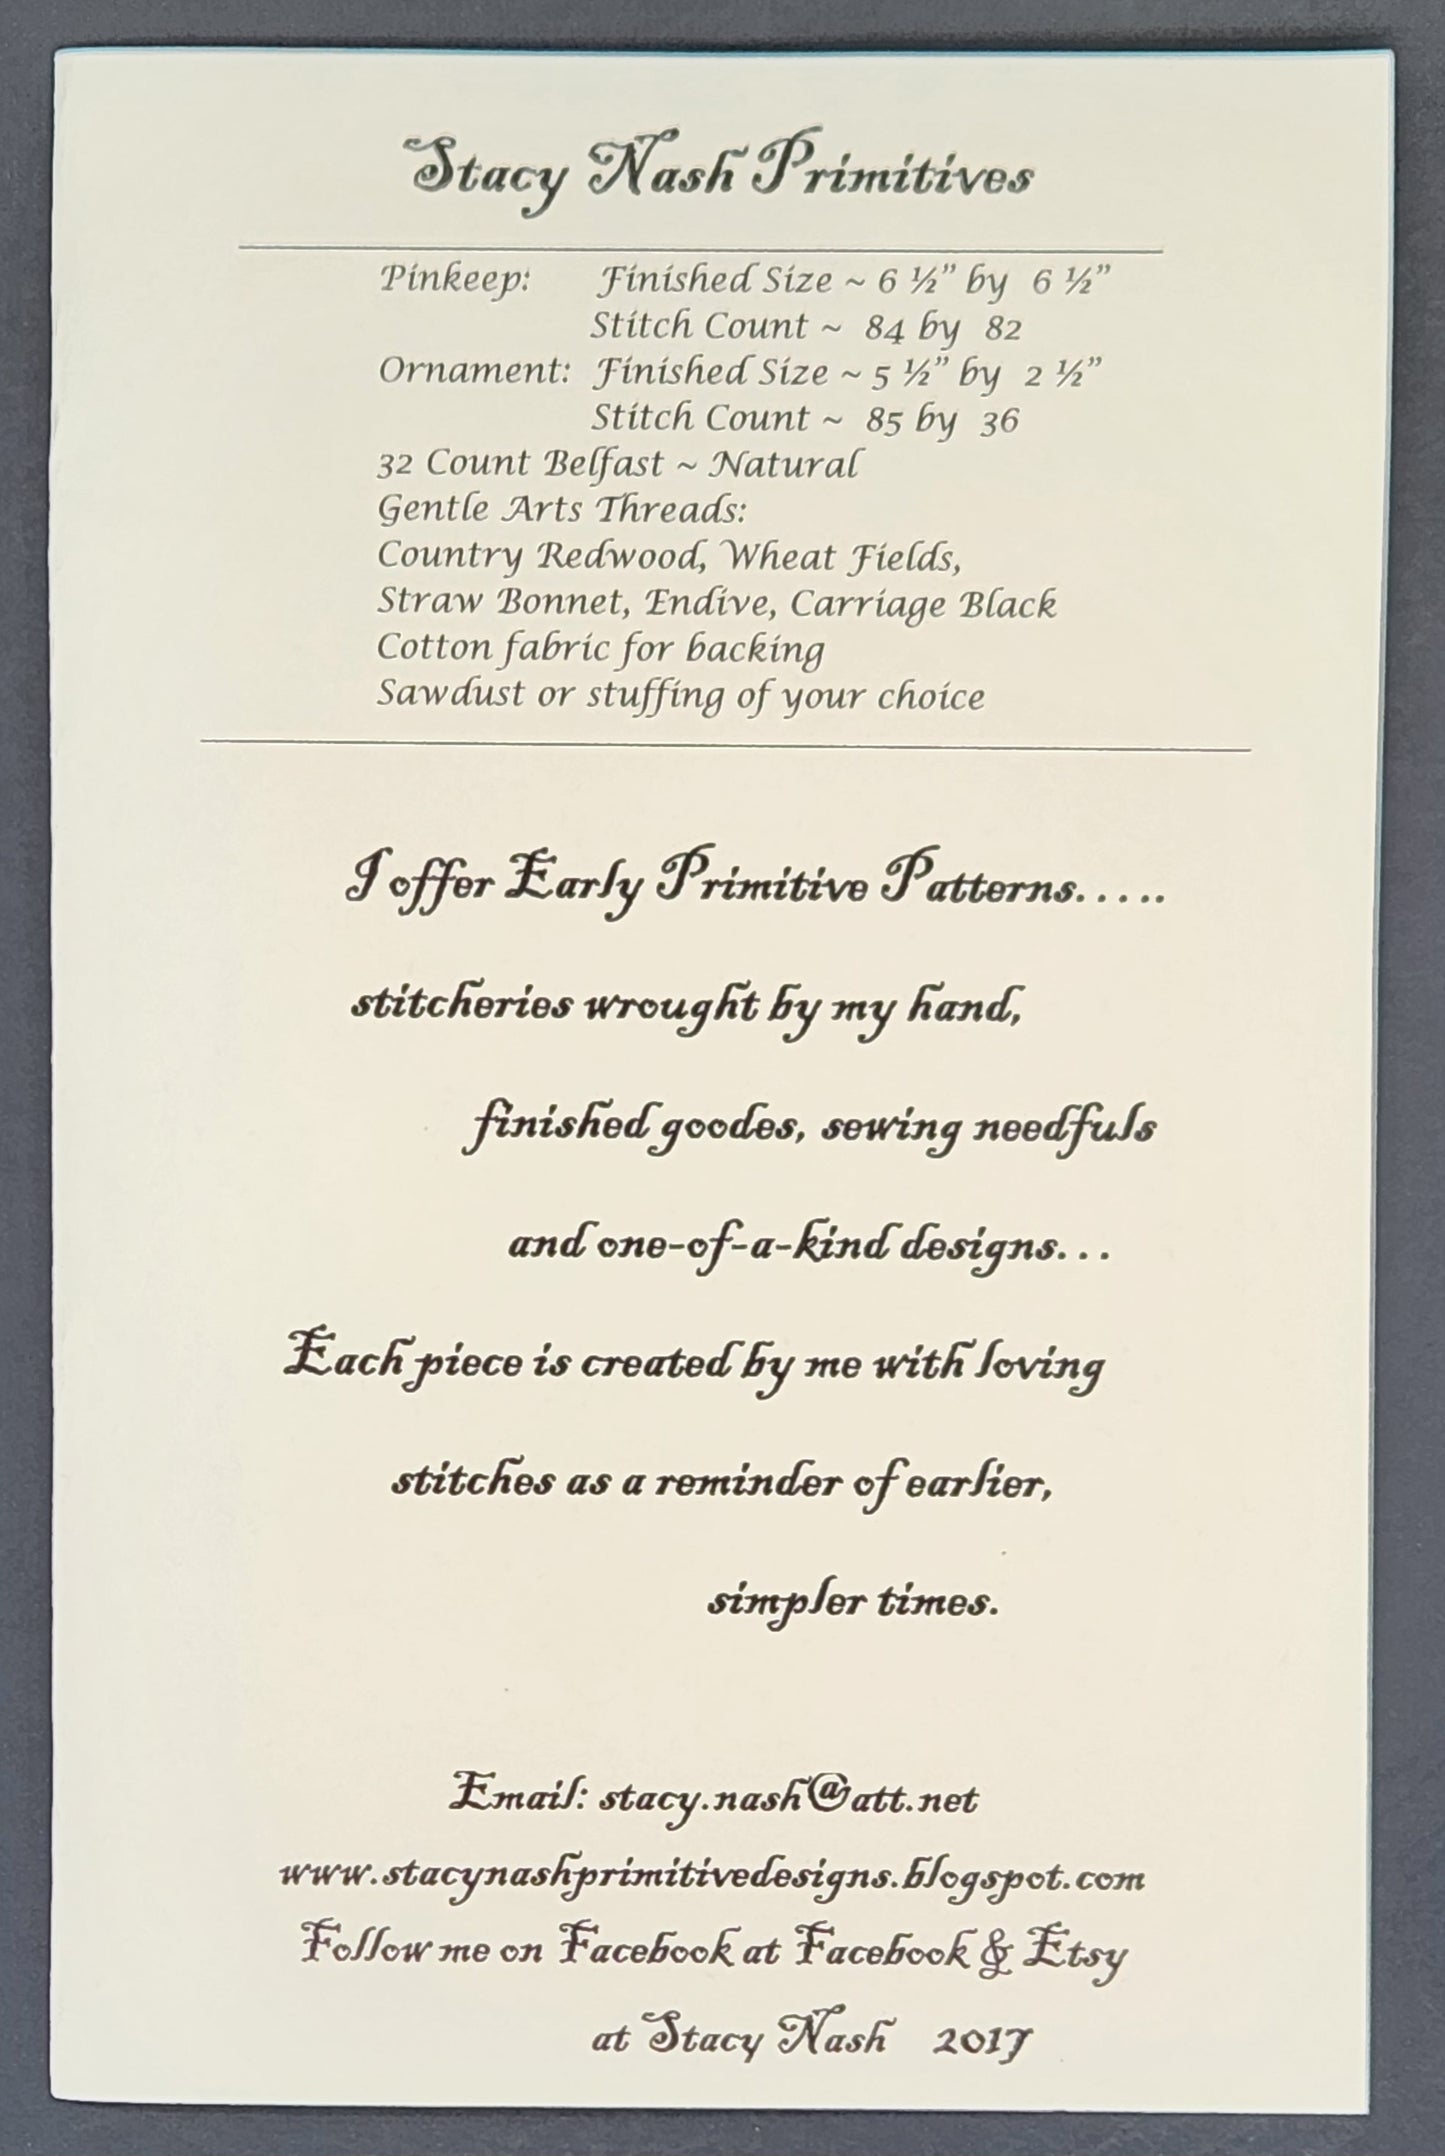 Stacy Nash Primitives
Pinkeep: Finished Size ~ 6 ½” by 6 ½”
Stitch Count ~ 84 by 82
Ornament: Finished Size ~ 5 ½” by 2 ½”
Stitch Count ~ 85 by 36
32 Count Belfast ~ Natural
Gentle Arts Threads:
Country Redwood, Wheat Fields,
Straw Bonnet, Endive, Carriage Black
Cotton fabric for backing
Sawdust or stuffing of your choice
I offer Early Primitive Patterns.....
stitcheries wrought by my hand,
finished goodes, sewing needfuls
and one-of-a-kind designs...
Each piece is created by me with loving
stitches as a reminder of earlier,
simpler times.
Email: stacy.nash@att.net
www.stacynashprimitivedesigns.blogspot.com
Follow me on Facebook at Facebook & Etsy
at Stacy Nash 2017